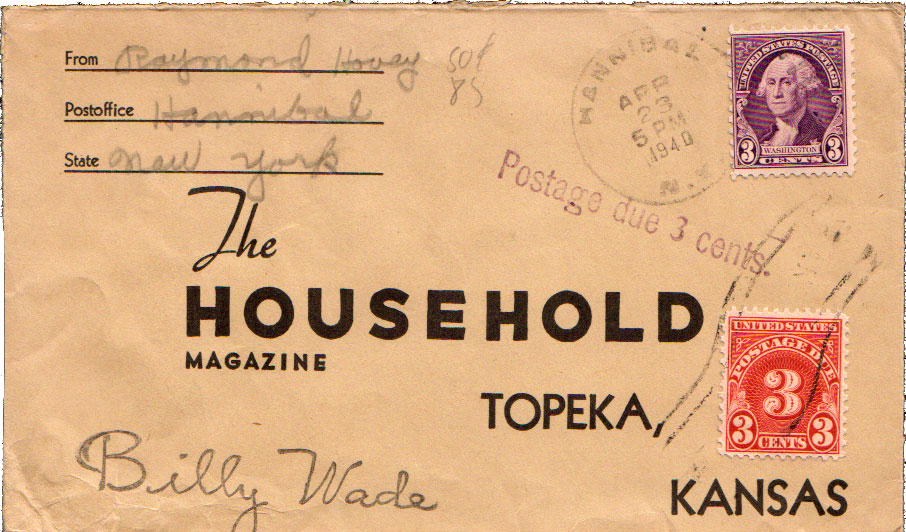 From Raymond Hovey 50¢
85
Postoffice Hannibal
State New York
HANNIBAL
APR
26
5 PM
1940
N.Y.
UNITED STATES POSTAGE
WASHINGTON
3 CENTS 3
Postage due 3 cents.
The
HOUSEHOLD
MAGAZINE
TOPEKA,
KANSAS
UNITED STATES
POSTAGE DUE
3
3 CENTS 3
Billy Wade